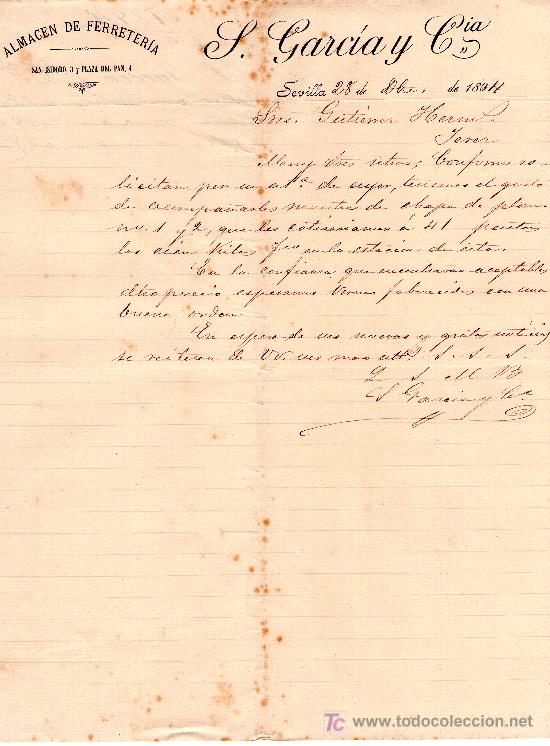 ALMACEN DE FERRETERÍA
SAN ISIDORO, 3 y PLAZA DEL PAN, 4
S. García y Cia
Sevilla 28 de Dbre. de 1894
Sres. Gutierrez Herms.
Jerez
Muy Sres ntros; Conforme so-
licitan por su at.ª de ayer, tenemos el gusto
de acompañarles muestras de chapa de plomo
nos. 1 y 2, que les cotisamos á 41 pesetas
los cien Kilos fco en la estacion de esta.
En la confianza que encontraran aceptables
dtro precio, esperamos vernos faborecidos con una
buena orden.
En espera de sus nuevas y gratas noticias
se reiteran de VV. sus mas att. S. S. S.
Q S M B
S García y Ca
TC todocoleccion.net
www.todocoleccion.net